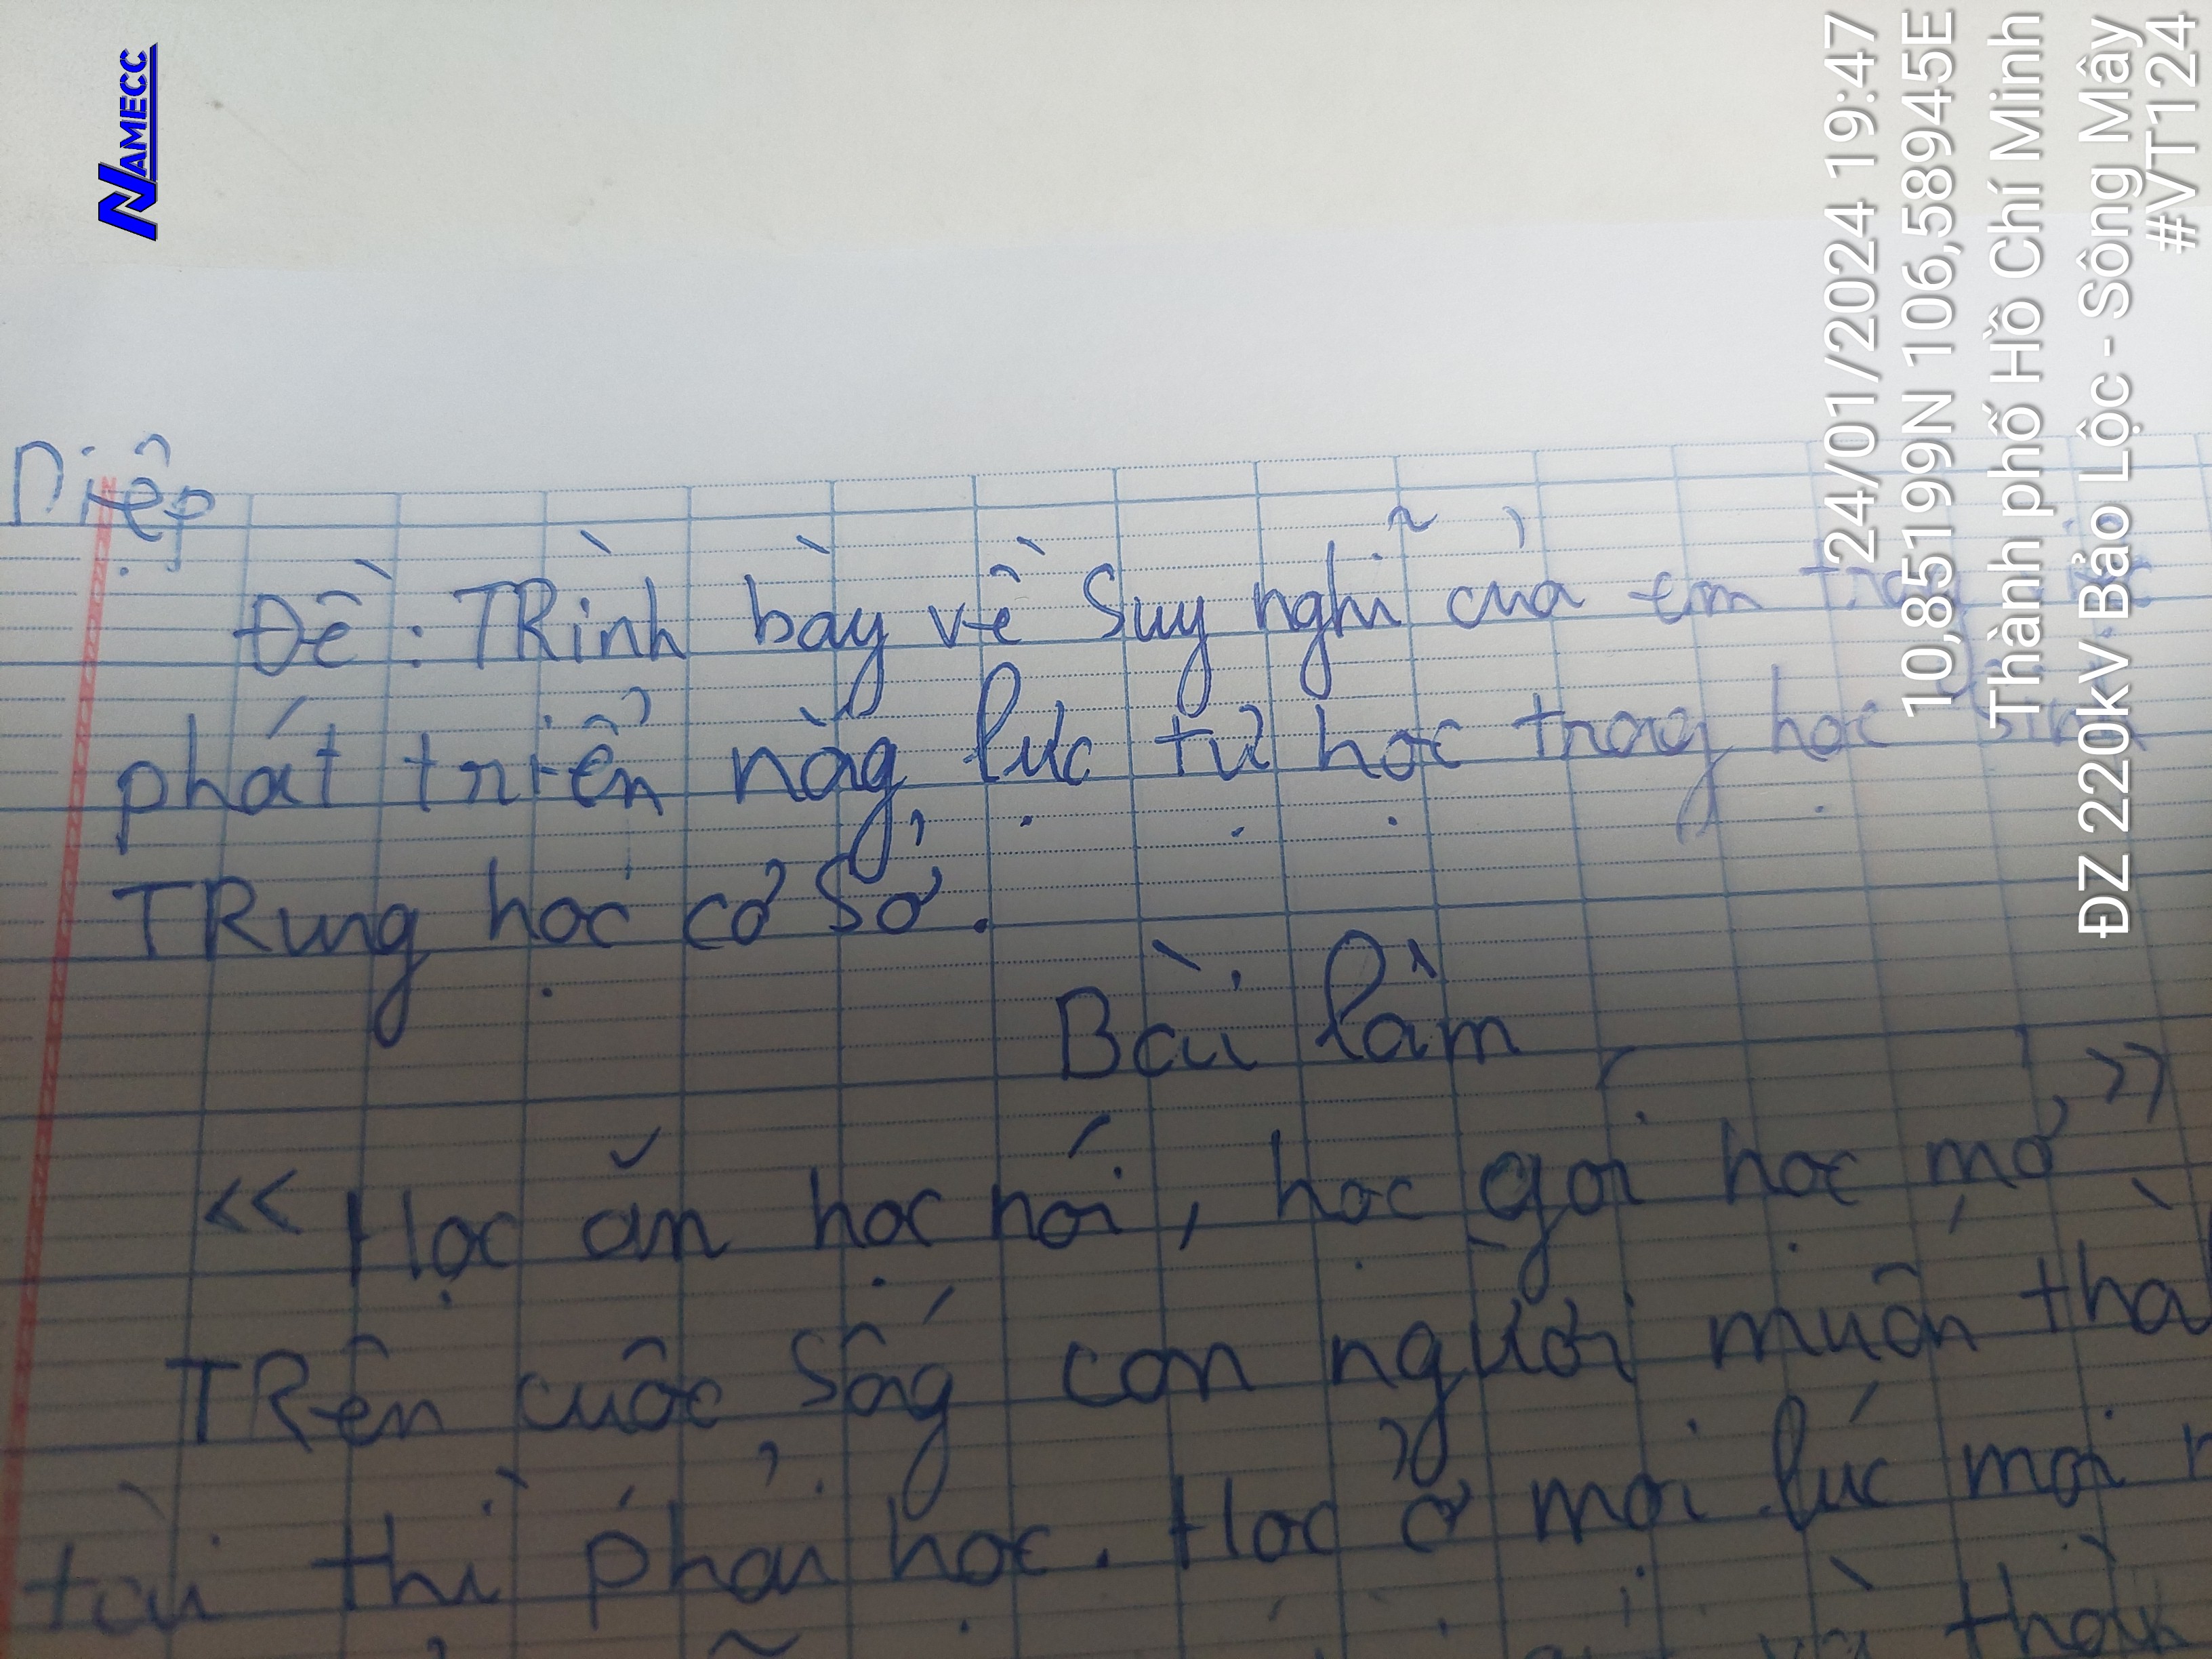 NAMECC
24/01/2024 19:47
10,85199N 106,58945E
Thành phố Hồ Chí Minh
ĐZ 220kV Bảo Lộc - Sông Mây
#VT124
Diệp
Đề: TRình bày về Suy nghĩ của em
phát triển nàg lực tự học trog học sinh
TRung học cơ Sở.
Bài làm
<< Học ăn học nói, học gói học mở >>
TRên cuộc Sốg con người muốn
tài thì phải học. Học ở mọi lúc mọi
và